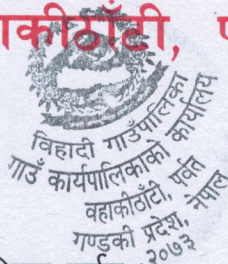 ाकीठाँटी, प
विहादी गाउँपालिका
गाउँ कार्यपालिकाको कार्यालय
वहाकीठाँटी, पर्वत
गण्डकी प्रदेश, नेपाल
२०७३